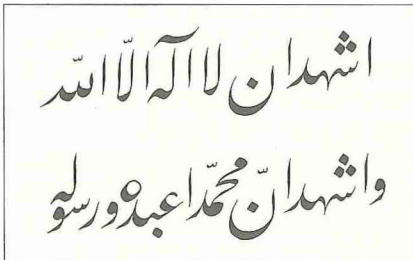 اشهد ان لا اله الّا الله
و اشهد انّ محمّدا عبده و رسوله